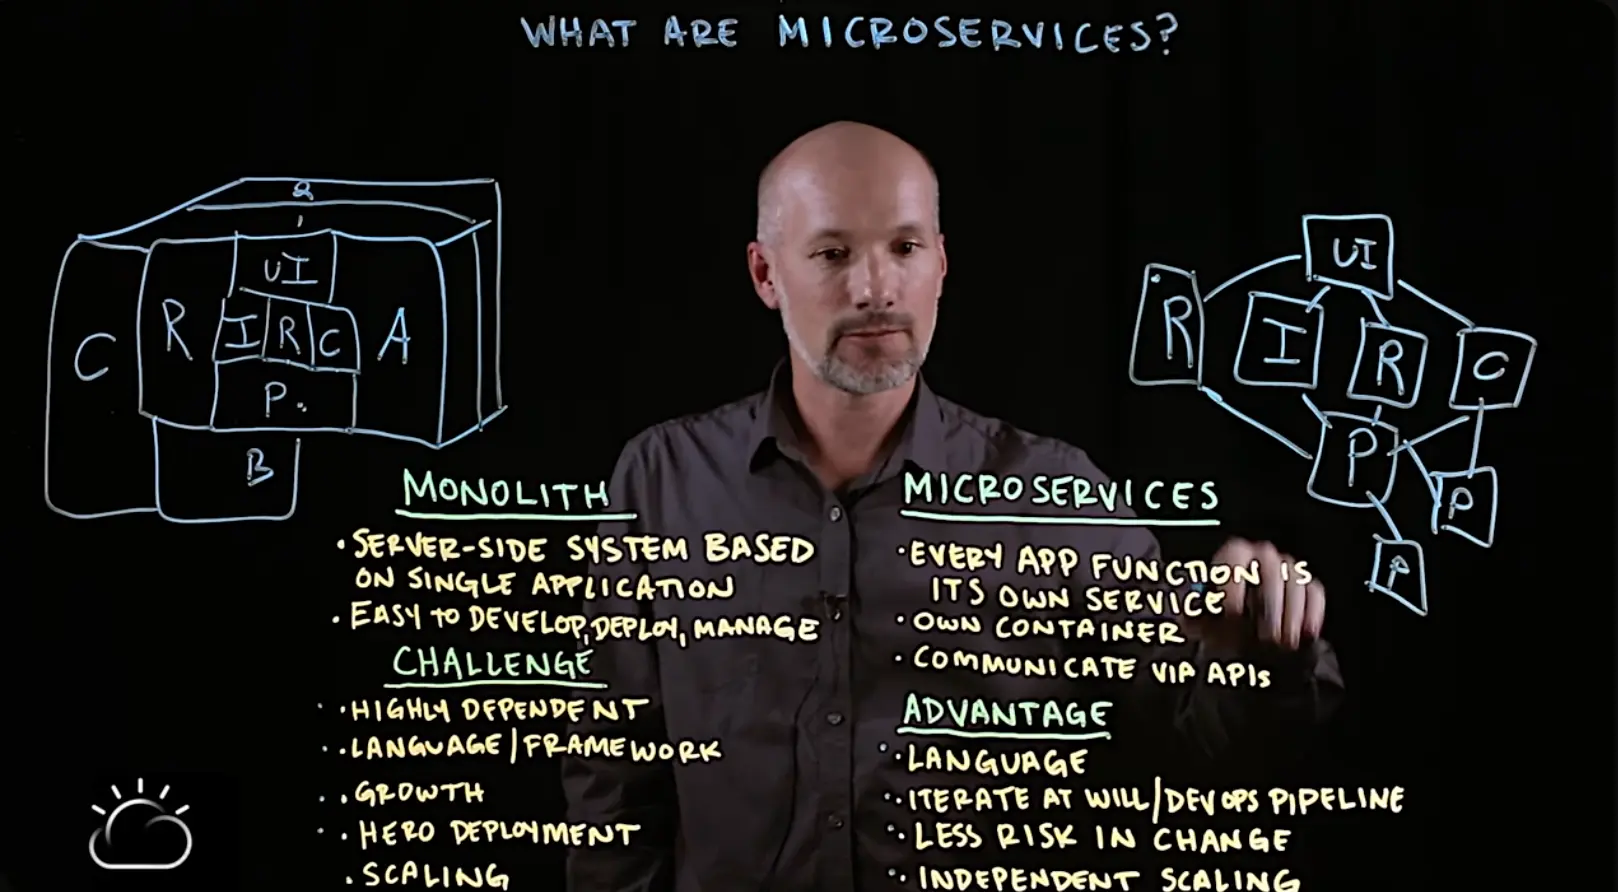 WHAT ARE MICROSERVICES?
UI
C
R
I
R
C
A
P.
B
UI
R
I
R
C
P
P
P
MONOLITH
• SERVER-SIDE SYSTEM BASED
ON SINGLE APPLICATION
• EASY TO DEVELOP, DEPLOY, MANAGE
CHALLENGE
• HIGHLY DEPENDENT
• LANGUAGE/FRAMEWORK
• GROWTH
• HERO DEPLOYMENT
• SCALING
MICROSERVICES
• EVERY APP FUNCTION IS
ITS OWN SERVICE
• OWN CONTAINER
• COMMUNICATE VIA APIs
ADVANTAGE
• LANGUAGE
• ITERATE AT WILL/DEVOPS PIPELINE
• LESS RISK IN CHANGE
• INDEPENDENT SCALING